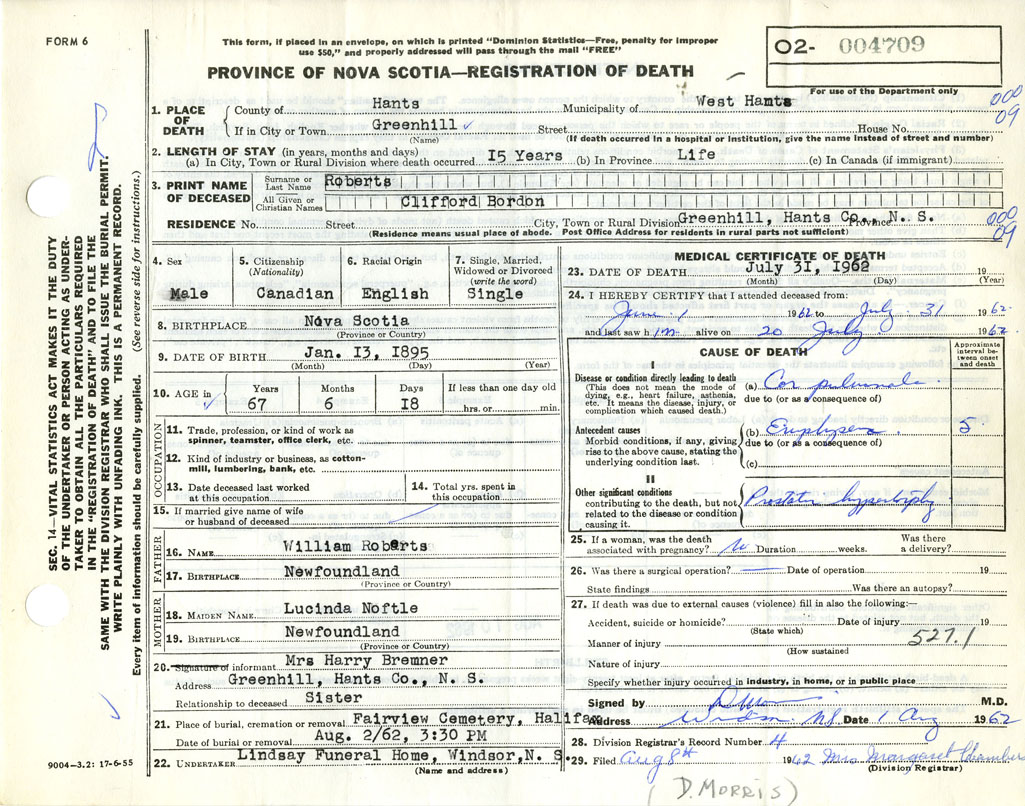 FORM 6
This form, if placed in an envelope, on which is printed "Dominion Statistics—Free, penalty for improper
use $50," and properly addressed will pass through the mail "FREE"
O2- 004709
For use of the Department only
PROVINCE OF NOVA SCOTIA—REGISTRATION OF DEATH
SEC. 14—VITAL STATISTICS ACT MAKES IT THE DUTY
OF THE UNDERTAKER OR PERSON ACTING AS UNDER-
TAKER TO OBTAIN ALL THE PARTICULARS REQUIRED
IN THE "REGISTRATION OF DEATH" AND TO FILE THE
SAME WITH THE DIVISION REGISTRAR WHO SHALL ISSUE THE BURIAL PERMIT.
WRITE PLAINLY WITH UNFADING INK. THIS IS A PERMANENT RECORD.
Every item of information should be carefully supplied. (See reverse side for instructions.)
1. PLACE OF DEATH
County of Hants Municipality of West Hants
000
09
If in City or Town Greenhill ✓ Street House No.
(Name) (If death occurred in a hospital or institution, give the name instead of street and number)
2. LENGTH OF STAY (in years, months and days)
(a) In City, Town or Rural Division where death occurred 15 Years (b) In Province Life (c) In Canada (if immigrant)
3. PRINT NAME OF DECEASED
Surname or Last Name Roberts
All Given or Christian Names Clifford Bordon
RESIDENCE No. Street City, Town or Rural Division Greenhill, Hants Co., N. S. Province
000
09
(Residence means usual place of abode. Post Office Address for residents in rural parts not sufficient)
4. Sex
Male
5. Citizenship
(Nationality)
Canadian
6. Racial Origin
English
7. Single, Married,
Widowed or Divorced
(write the word)
Single
8. BIRTHPLACE Nova Scotia
(Province or Country)
9. DATE OF BIRTH Jan. 13, 1895
(Month) (Day) (Year)
10. AGE in ✓
Years Months Days If less than one day old
67 6 18 hrs. or min.
OCCUPATION
11. Trade, profession, or kind of work as
spinner, teamster, office clerk, etc.
12. Kind of industry or business, as cotton-
mill, lumbering, bank, etc.
13. Date deceased last worked
at this occupation
14. Total yrs. spent in
this occupation
15. If married give name of wife
or husband of deceased
FATHER
16. NAME William Roberts
17. BIRTHPLACE Newfoundland
(Province or Country)
MOTHER
18. MAIDEN NAME Lucinda Noftle
19. BIRTHPLACE Newfoundland
(Province or Country)
20. Signature of informant Mrs Harry Bremner
Address Greenhill, Hants Co., N. S.
Relationship to deceased Sister
21. Place of burial, cremation or removal Fairview Cemetery, Halifax
Date of burial or removal Aug. 2/62, 3:30 PM
22. UNDERTAKER Lindsay Funeral Home, Windsor, N. S.
(Name and address)
9004-3.2: 17-6-55
MEDICAL CERTIFICATE OF DEATH
23. DATE OF DEATH July 31, 1962 19
(Month) (Day) (Year)
24. I HEREBY CERTIFY that I attended deceased from:
June 1 1962 to July 31 1962
and last saw him alive on 20 July 1962
CAUSE OF DEATH
Approximate
interval be-
tween onset
and death
I
Disease or condition directly leading to death
(This does not mean the mode of
dying, e.g., heart failure, asthenia,
etc. It means the disease, injury, or
complication which caused death.)
(a) Cor pulmonale
due to (or as a consequence of)
Antecedent causes
Morbid conditions, if any, giving
rise to the above cause, stating the
underlying condition last.
(b) Emphysema 5
due to (or as a consequence of)
(c)
II
Other significant conditions
contributing to the death, but not
related to the disease or condition
causing it.
Prostatic hypertrophy
25. If a woman, was the death
associated with pregnancy? Duration weeks.
Was there
a delivery?
26. Was there a surgical operation? Date of operation 19
State findings Was there an autopsy?
27. If death was due to external causes (violence) fill in also the following:—
Accident, suicide or homicide? Date of injury 19
(State which)
527.1
Manner of injury
(How sustained
Nature of injury
Specify whether injury occurred in industry, in home, or in public place
Signed by D Morris M.D.
Address Windsor N.S. Date 1 Aug 1962
28. Division Registrar's Record Number 4
29. Filed Aug 8th 1962 Mrs Margaret Chambers
(Division Registrar)
(D. MORRIS)